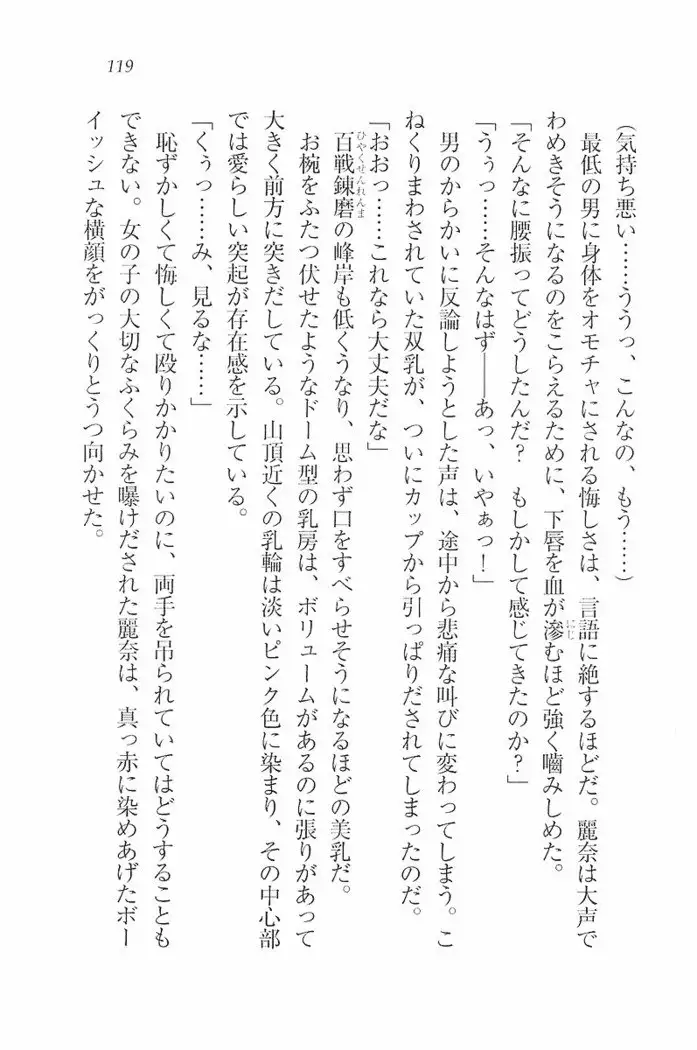 119
(気持ち悪い……ううっ、こんなの、もう……)
最低の男に身体をオモチャにされる悔しさは、言語に絶するほどだ。麗奈は大声で
わめきそうになるのをこらえるために、下唇を血が滲むほど強く嚙みしめた。
「そんなに腰振ってどうしたんだ? もしかして感じてきたのか?」
「うぅっ……そんなはず――あっ、いやぁっ!」
男のからかいに反論しようとした声は、途中から悲痛な叫びに変わってしまう。こ
ねくりまわされていた双乳が、ついにカップから引っぱりだされてしまったのだ。
「おおっ……これなら大丈夫だな」
百戦錬磨の峰岸も低くうなり、思わず口をすべらせそうになるほどの美乳だ。
お椀をふたつ伏せたようなドーム型の乳房は、ボリュームがあるのに張りがあって
大きく前方に突きだしている。山頂近くの乳輪は淡いピンク色に染まり、その中心部
では愛らしい突起が存在感を示している。
「くぅっ……み、見るな……」
恥ずかしくて悔しくて殴りかかりたいのに、両手を吊られていてはどうすることも
できない。女の子の大切なふくらみを曝けだされた麗奈は、真っ赤に染めあげたボー
イッシュな横顔をがっくりとうつ向かせた。